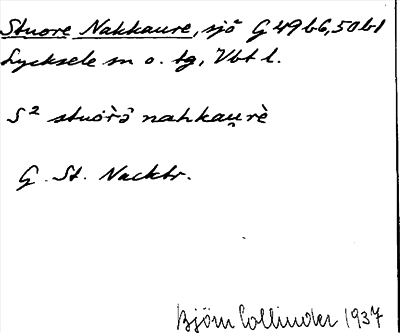 Stuore Nakkaure, sjö G 49 b6, 50 b1
Lycksele sn o. tg, Vbt l.
S² stuȯrɔ̀ nahkau̯rè
G. St. Nacktr.
Björn Collinder 1937